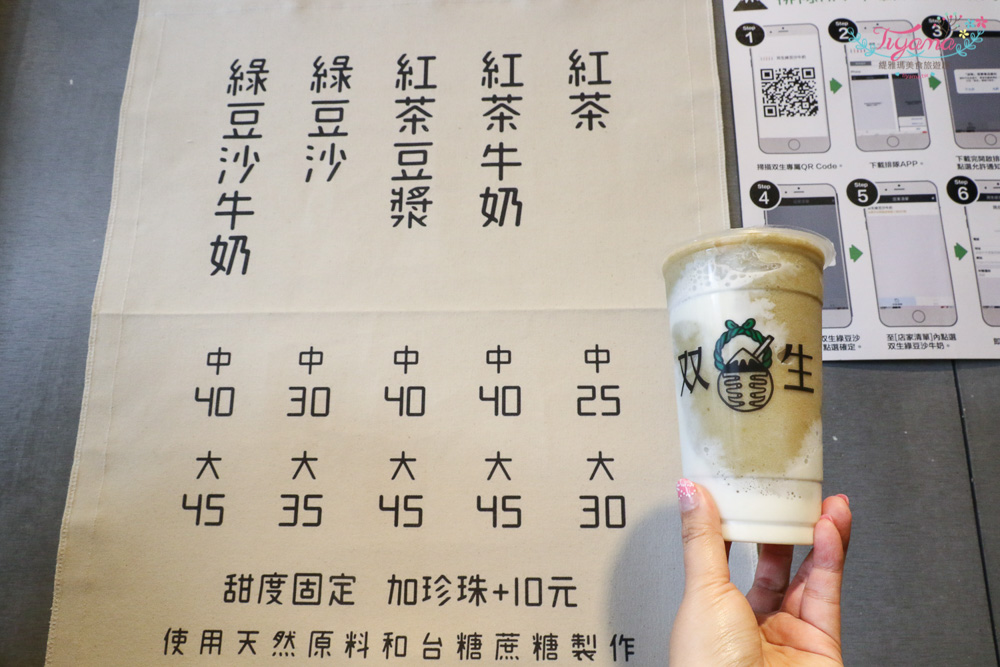 紅茶
紅茶牛奶
紅茶豆漿
綠豆沙
綠豆沙牛奶
中 中 中 中 中
40 30 40 40 25
大 大 大 大 大
45 35 45 45 30
甜度固定 加珍珠+10元
使用天然原料和台糖蔗糖製作
双生
Tiyama
緹雅瑪美食旅遊
Step 1
Step 2
Step 3
掃描双生專屬QR Code。
下載排隊APP。
下載完開啟排
點選允許通知
Step 4
Step 5
Step 6
双生綠豆沙
點選確定。
至[店家清單]內點選
双生綠豆沙牛奶。